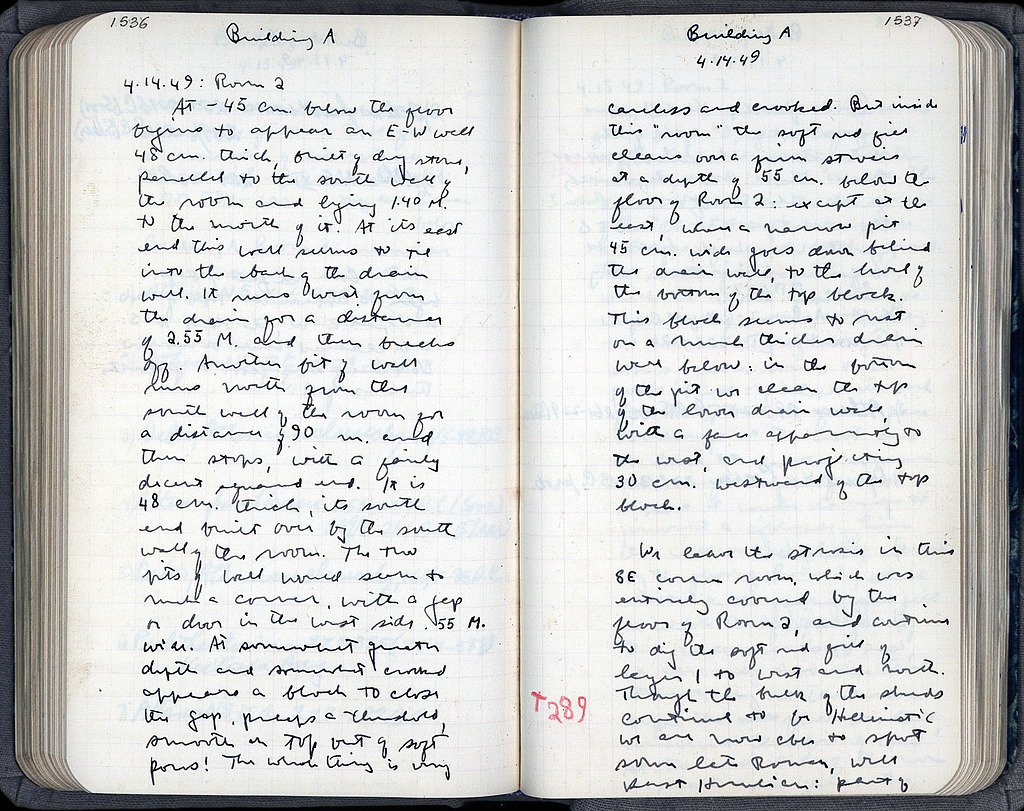 1536
Building A
4.14.49: Room 2
At -.45 cm. below the floor
begins to appear an E-W wall
48 cm. thick, built of dry stone,
parallel to the south wall of
the room and lying 1.40 M.
to the north of it. At its east
end this wall seems to tie
into the back of the drain
wall. It runs west from
the drain for a distance
of 2.55 M. and then breaks
off. Another bit of wall
runs north from the
south wall of the room for
a distance of .90 m. and
then stops, with a fairly
decent squared end. It is
48 cm. thick, its south
end built over by the south
wall of the room. The two
bits of wall would seem to
make a corner, with a gap
or door in the west side .55 M.
wide. At somewhat greater
depth and somewhat crooked
appears a block to close
the gap, perhaps a threshold,
smooth on top but of soft
poros! The whole thing is very
1537
Building A
4.14.49
careless and crooked. But inside
this "room" the soft red fill
cleans over a firm stroses
at a depth of 55 cm. below the
floor of Room 2: except at the
east, where a narrow pit
45 cm. wide goes down behind
the drain wall, to the level of
the bottom of the top block.
This block seems to rest
on a much thicker drain
wall below: in the bottom
of the pit we clean the top
of the lower drain wall,
with a face apparently to
the west, and projecting
30 cm. westward of the top
block.
We leave the strosis in this
SE corner room, which was
entirely covered by the
floor of Room 2, and continue
to dig the soft red fill of
layer 1 to west and north.
Though the bulk of the sherds
continue to be Hellenistic
we are now able to spot
some late Roman, well
past Herulian: part of
T 289